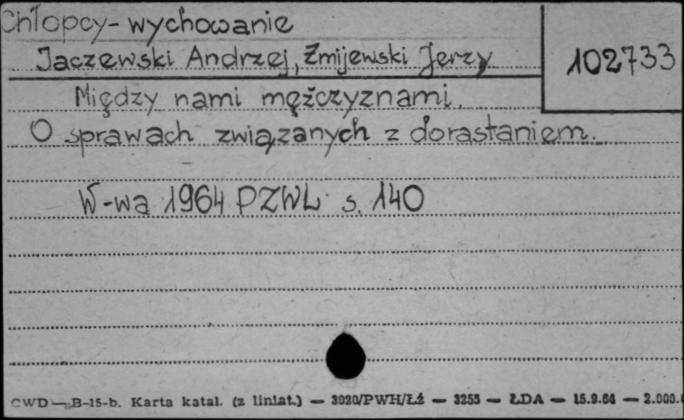 Chłopcy - wychowanie
Jaczewski Andrzej, Żmijewski Jerzy
102733
Między nami mężczyznami.
O sprawach związanych z dorastaniem.
W-wa 1964 PZWL s. 140
CWD — B-15-b. Karta katal. (z liniat.) — 3020/PWH/Łź — 3255 — ŁDA — 15.9.64 — 2.000.